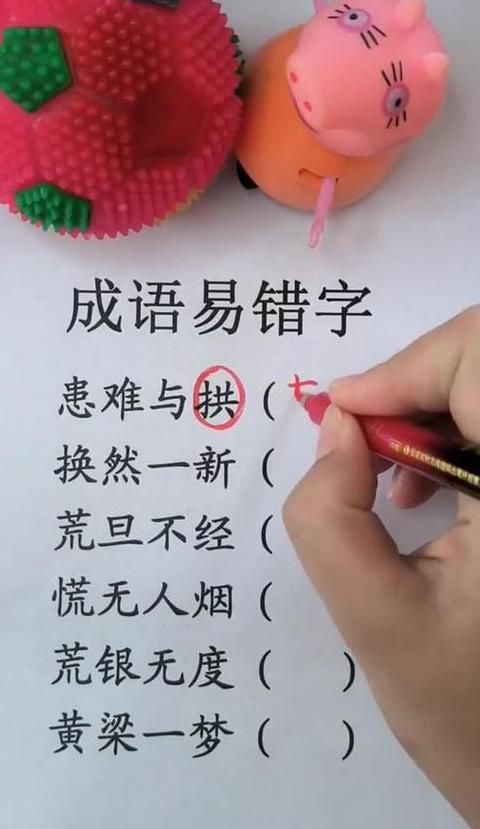 成语易错字
患难与拱(
换然一新(
荒旦不经(
慌无人烟(
荒银无度( )
黄梁一梦( )